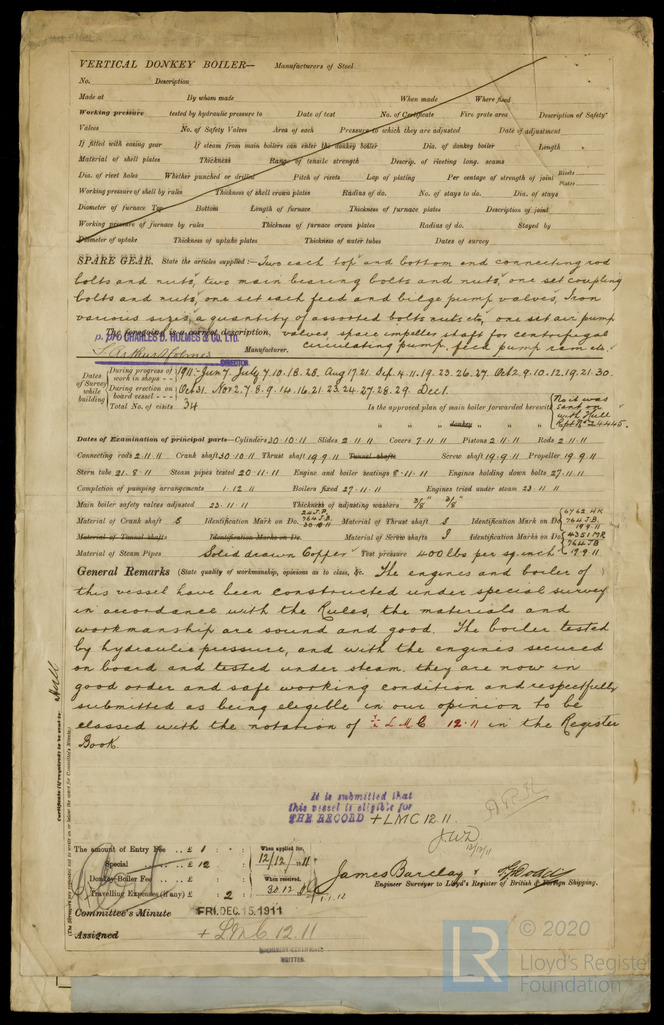 VERTICAL DONKEY BOILER— Manufacturers of Steel
No. Description
Made at By whom made When made Where fixed
Working pressure tested by hydraulic pressure to Date of test No. of Certificate Fire grate area Description of Safety
Valves No. of Safety Valves Area of each Pressure to which they are adjusted Date of adjustment
If fitted with easing gear If steam from main boilers can enter the donkey boiler Dia. of donkey boiler Length
Material of shell plates Thickness Range of tensile strength Descrip. of riveting long. seams
Dia. of rivet holes Whether punched or drilled Pitch of rivets Lap of plating Per centage of strength of joint Rivets Plates
Working pressure of shell by rules Thickness of shell crown plates Radius of do. No. of stays to do. Dia. of stays
Diameter of furnace Top Bottom Length of furnace Thickness of furnace plates Description of joint
Working pressure of furnace by rules Thickness of furnace crown plates Radius of do. Stayed by
Diameter of uptake Thickness of uptake plates Thickness of water tubes Dates of survey
SPARE GEAR. State the articles supplied:— Two each top and bottom end connecting rod
bolts and nuts, two main bearing bolts and nuts, one set coupling
bolts and nuts, one set each feed and bilge pump valves, Iron
various sizes, a quantity of assorted bolts nuts etc, one set air pump
The foregoing is a correct description, valves, spare impeller shaft for centrifugal
CHARLES D. HOLMES & CO. LTD. circulating pump, feed pump ram etc.
Arthur Holmes Manufacturer.
DIRECTOR.
Dates of Survey while building
During progress of work in shops - - 1911 - Jun 7. July 7.10.18.28. Aug 17.21. Sep. 4.11.19.23.26.27. Oct 2.9.10.12.19.21.30.
During erection on board vessel - - - Oct 31. Nov 2.7.8.9.14.16.21.23.24.27.28.29. Dec 1.
Total No. of visits 34 Is the approved plan of main boiler forwarded herewith No it was sent on with Hull Rept No 24445.
" " " donkey " " "
Dates of Examination of principal parts—Cylinders 30.10.11 Slides 2.11.11 Covers 7.11.11 Pistons 2.11.11 Rods 2.11.11
Connecting rods 2.11.11 Crank shaft 30.10.11 Thrust shaft 19.9.11 Tunnel shafts Screw shaft 19.9.11 Propeller 19.9.11
Stern tube 21.8.11 Steam pipes tested 20.11.11 Engine and boiler seatings 8.11.11 Engines holding down bolts 27.11.11
Completion of pumping arrangements 1.12.11 Boilers fixed 27.11.11 Engines tried under steam 23.11.11
Main boiler safety valves adjusted 23.11.11 Thickness of adjusting washers 3/8" 3/8"
Material of Crank shaft S Identification Mark on Do. 764 J.B. 30.10.11 Material of Thrust shaft S Identification Mark on Do. 6762 HK 764 J.B. 19.9.11
Material of Tunnel shafts Identification Marks on Do. Material of Screw shafts Identification Marks on Do. 4351 MR 764 JB 19.9.11
Material of Steam Pipes Solid drawn Copper Test pressure 400 lbs per sq. inch
General Remarks (State quality of workmanship, opinions as to class, &c. The engines and boiler of
this vessel have been constructed under special survey
in accordance with the Rules, the materials and
workmanship are sound and good. The boiler tested
by hydraulic pressure, and with the engines secured
on board and tested under steam. they are now in
good order and safe working condition and respectfully
submitted as being eligible in our opinion to be
classed with the notation of + L.M.C 12.11 in the Register
Book.
Certificate (if required) to be sent to Hull
(The Surveyors are requested not to write on or below the space for Committee's Minute.)
It is submitted that
this vessel is eligible for
THE RECORD + LMC 12.11.
J.W.D.
The amount of Entry Fee .. £ 1 : : When applied for,
Special .. £ 12 : : 12/12/1911
Donkey Boiler Fee .. £ : : When received,
Travelling Expenses (if any) £ : 2 : 30.12.
James Barclay
Engineer Surveyor to Lloyd's Register of British & Foreign Shipping.
Committee's Minute FRI. DEC. 15. 1911
Assigned + LMC 12.11
MACHINERY CERTIFICATE
WRITTEN.
LR
© 2020
Lloyd's Register
Foundation